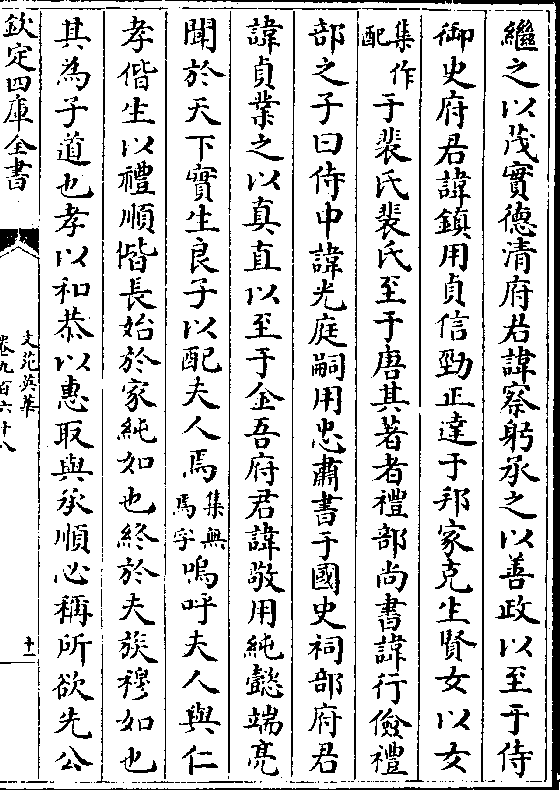 繼之以茂實德清府君諱察躬承之以善政以至于侍
御史府君諱鎮用貞信勁正達于邦家克生賢女以女
集作配于裴氏裴氏至于唐其著者禮部尚書諱行儉禮
部之子曰侍中諱光庭嗣用忠肅書于國史祠部府君
諱貞業之以真直以至于金吾府君諱敬用純懿端亮
聞於天下實生良子以配夫人焉集無焉字嗚呼夫人與仁
孝偕生以禮順偕長始於家純如也終於夫族穆如也
其為子道也孝以和恭以惠取與承順必稱所欲先公
欽定四庫全書
文苑英華
卷九百六十八
十一